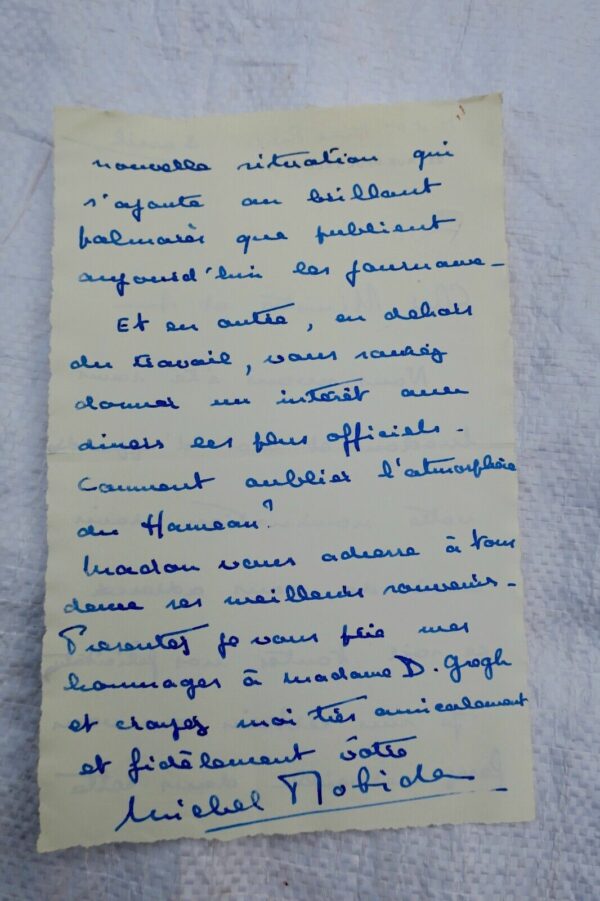 nouvelle situation qui
s'ajoute au brillant
palmarès que publient
aujourd'hui les journaux -
Et en outre, en dehors
du travail, vous saurez
donner un intérêt aux
diners les plus officiels -
Comment oublier l'atmosphère
du Hameau?
Madon vous adresse à tous
deux ses meilleurs souvenirs -
Présentez je vous prie mes
hommages à madame D. Grogh
et croyez moi très amicalement
et fidèlement vôtre
Michel